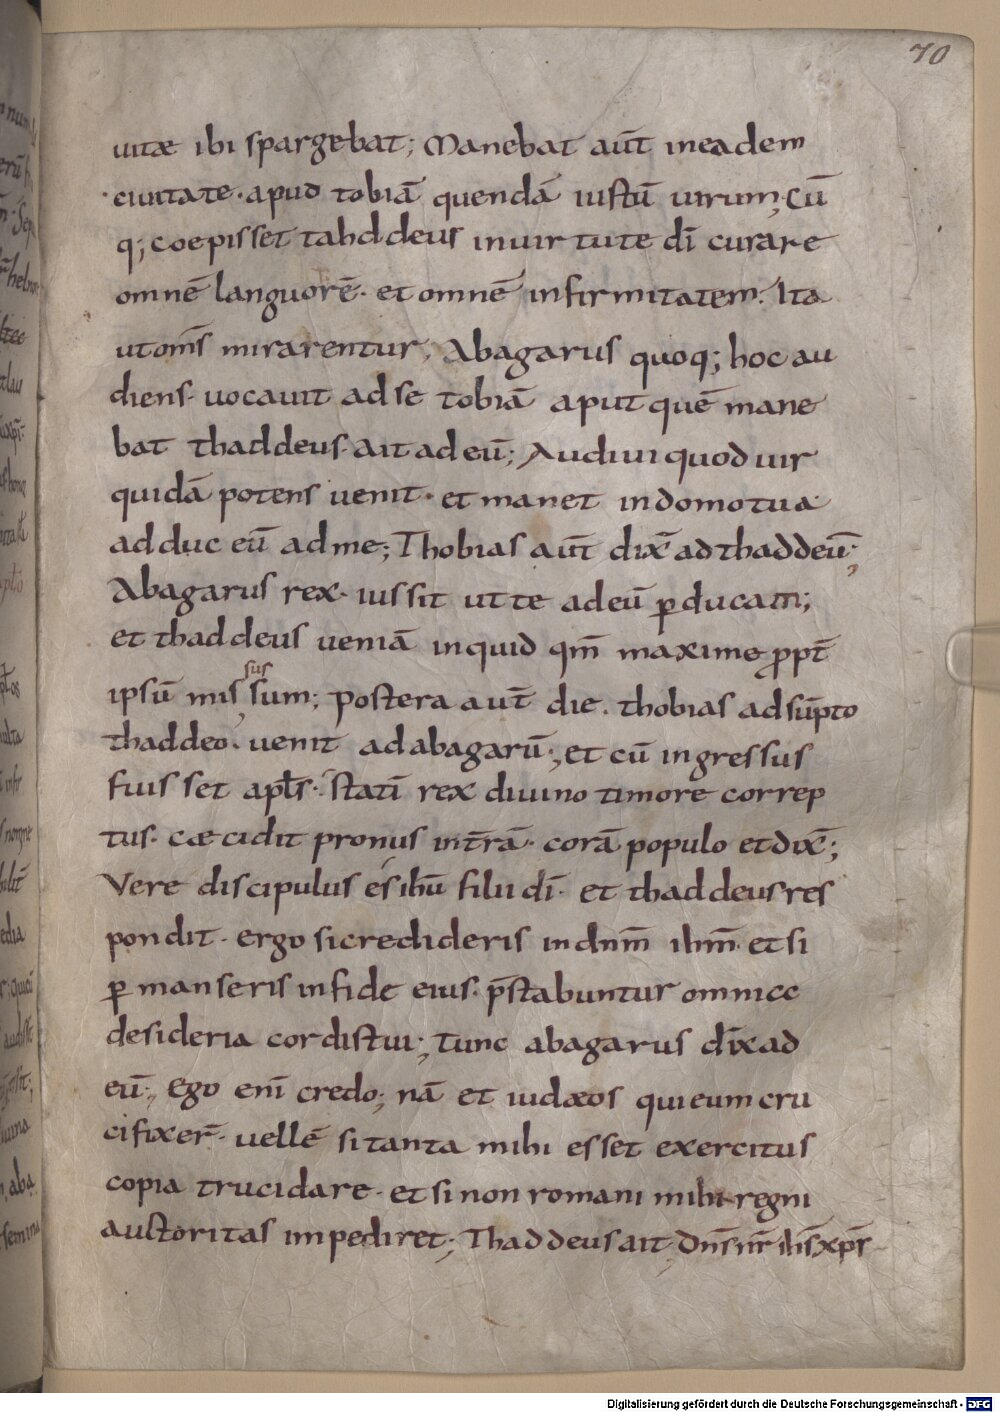 70
uitæ ibi spargebat; Manebat aūt ineadem
ciuitate · apud tobiā quendā iustū uirum; Cū
q; coepisset tahddeus inuirtute dī curare
omnē languorē · et omnē infirmitatem. Ita
utom̄s mirarentur; Abagarus quoq; hoc au
diens · uocauit adse tobiā aput quē mane
bat thaddeus · ait ad eū; Audiui quod uir
quidā potens uenit · et manet indomotua ·
adduc eū adme; Thobias aūt dix̄ adthaddeū;
Abagarus rex · iussit ut te adeū ꝑducam;
et thaddeus ueniā inquid qm̄ maxime ꝓpt̄
sus
ipsū mis sum; postera aūt die · thobias adsūpto
thaddeo · uenit adabagarū; et cū ingressus
fuisset apl̄s · statī rex diuino timore correp
tus · cæcidit pronus int̄rā · corā populo etdix̄;
Vere discipulus és ihū filii dī · et thaddeus res
pondit · ergo sicredideris indn̄m ihm̄ · et si
ꝑmanseris infide eius · p̄stabuntur omnice
desideria cordistui; tunc abagarus dix̄ad
eū; Ego enī credo; nā et iudæos quieum cru
cifixer̄ · uellē sitanta mihi esset exercitus
copia trucidare · et si non romani mihi regni
auctoritas impediret; Thaddeus ait, Dn̄s nr̄ ihs̄ xp̄s
Digitalisierung gefördert durch die Deutsche Forschungsgemeinschaft - DFG